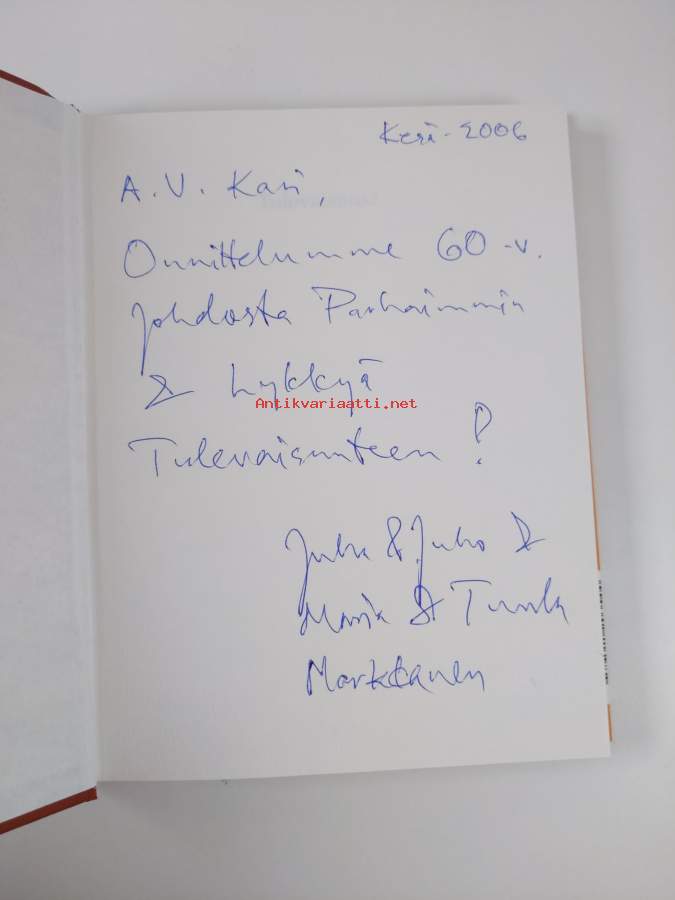 Kesä - 2006
A. V. Kari,
Onnittelumme 60 -v.
johdosta Parhaimmin
& Lykkyä
Antikvariaatti.net
Tulevaisuuteen !
Juha & Juho &
Maria & Tuula
Markkanen